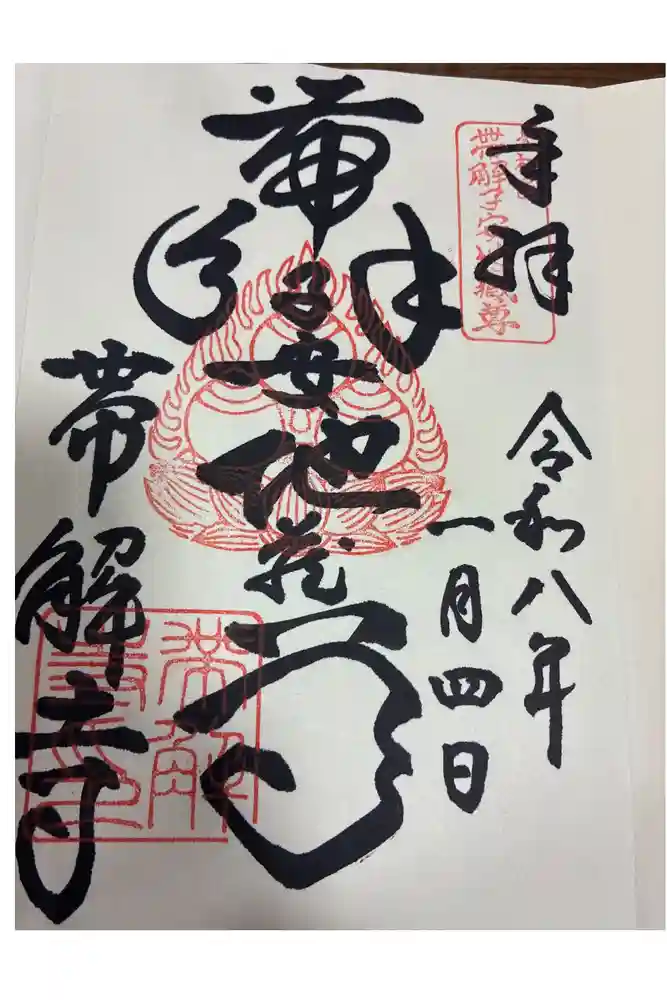 奉拝
令和八年
一月四日
子安地蔵
帯解寺
帯解子安地蔵尊
帯解